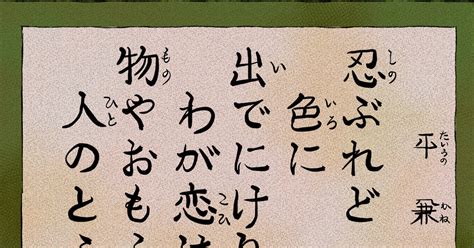 平兼
たいらの かね
忍ぶれど
しの
色に
いろ
出でにけり
い
わが恋は
こひ
物やおも
もの
人のと
ひと